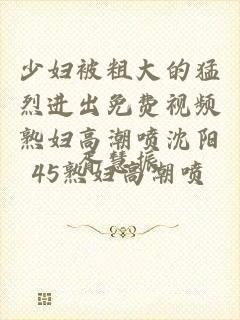 少妇被粗大的猛
烈进出免费视频
熟妇高潮喷沈阳
45熟妇高潮喷